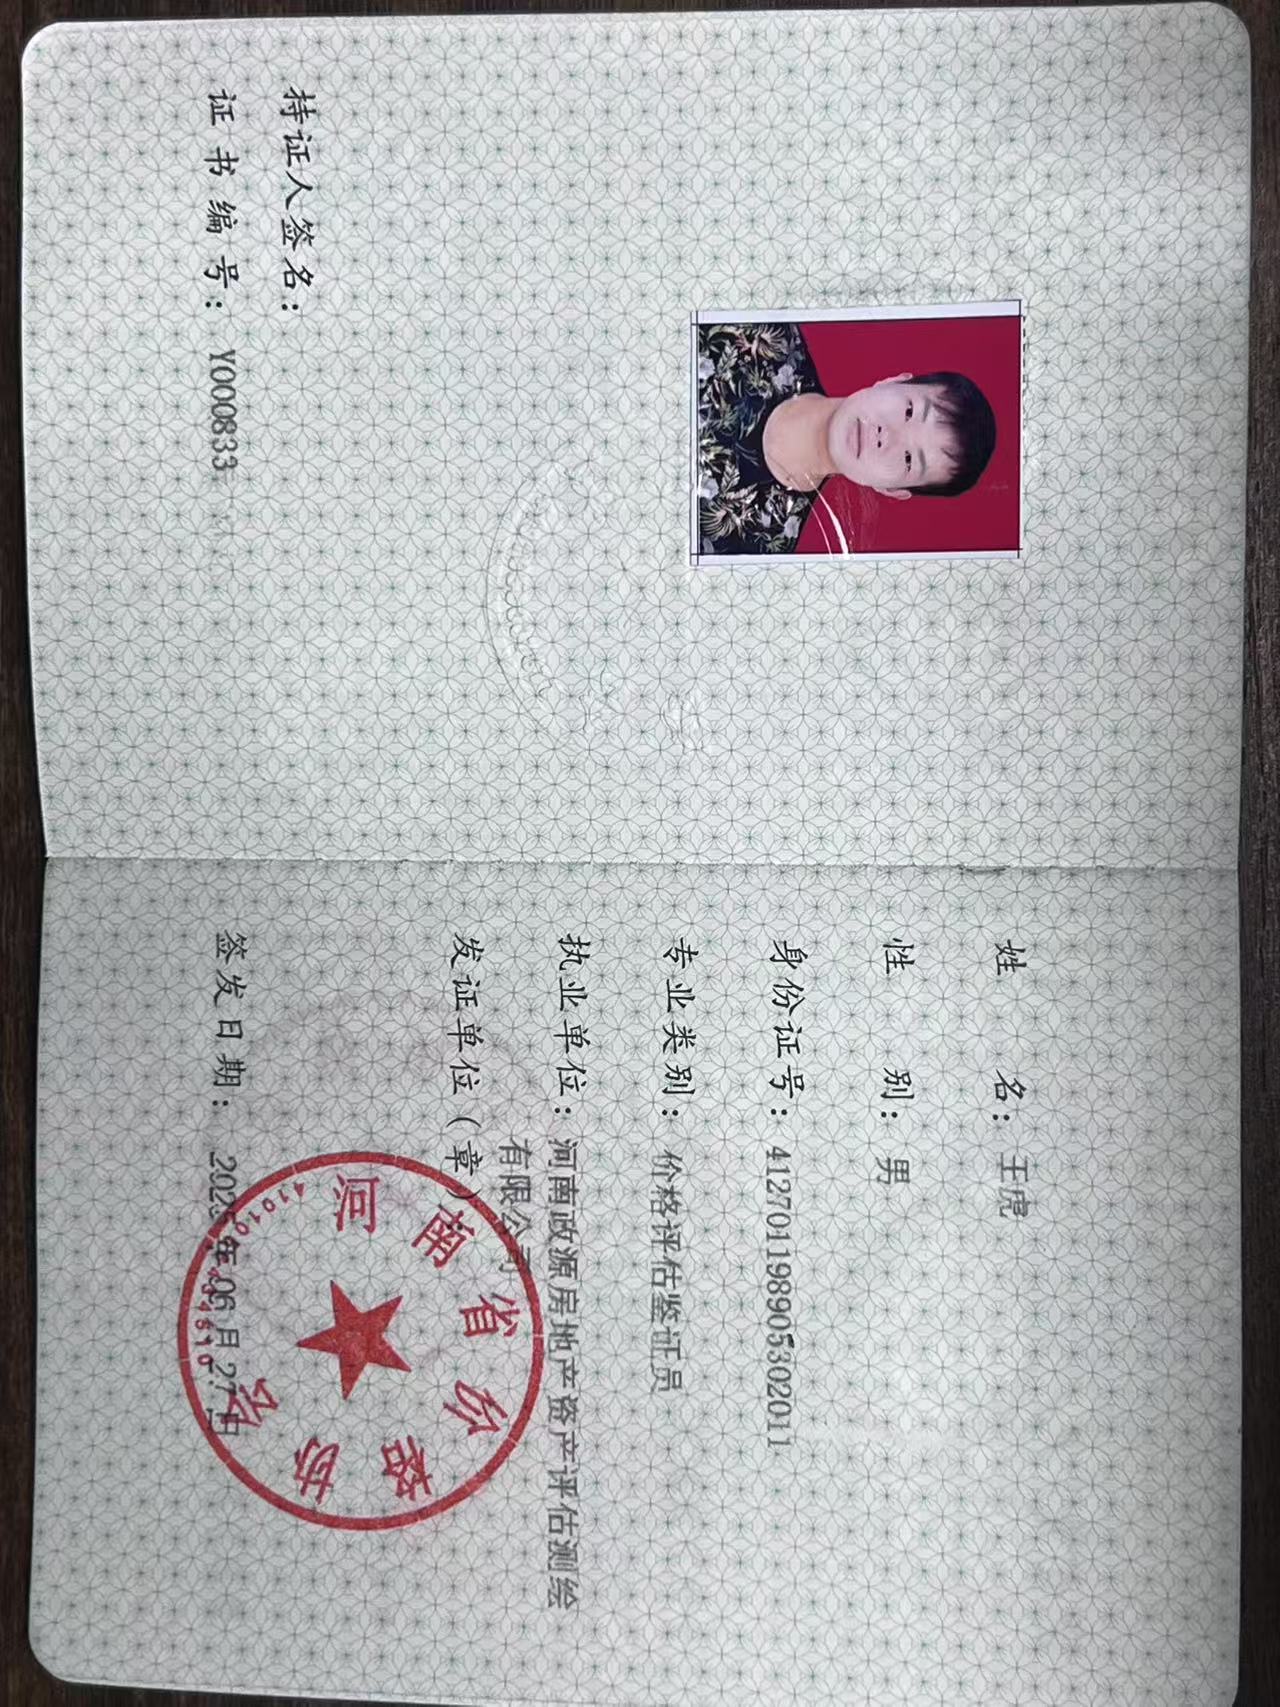 持证人签名：
证书编号：Y000833
姓名：王虎
性别：男
身份证号：412701198905302011
专业类别：价格评估鉴证员
执业单位：河南政源房地产资产评估测绘
有限公司
发证单位（章）
签发日期：2025年06月27日
河南省价格协会